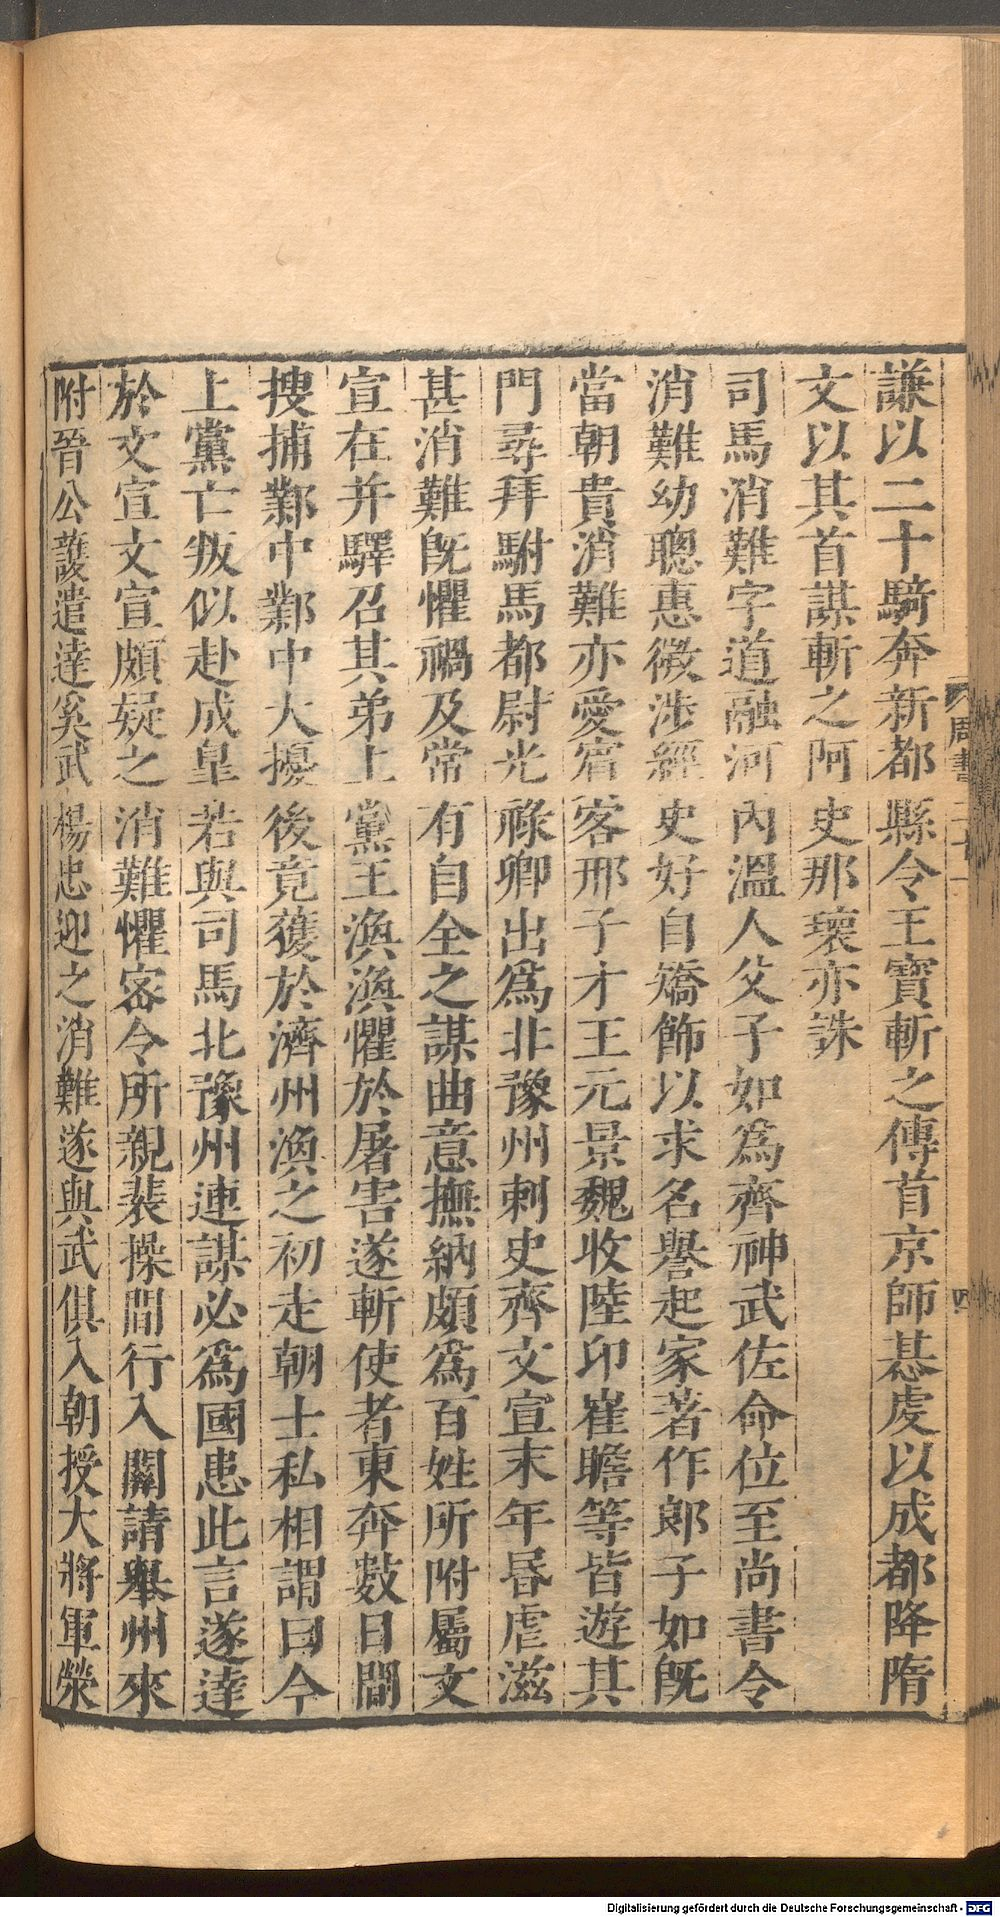 謙以二十騎奔新都縣令王寶斬之傳首京師惎虔以成都降隋
文以其首謀斬之阿史那瓌亦誅
司馬消難字道融河內溫人父子如爲齊神武佐命位至尚書令
消難幼聰惠微涉經史好自矯飾以求名譽起家著作郎子如旣
當朝貴消難亦愛賓客邢子才王元景魏收陸卬崔瞻等皆遊其
門尋拜駙馬都尉光祿卿出爲北豫州刺史齊文宣末年昏虐滋
甚消難旣懼禍及常有自全之謀曲意撫納頗爲百姓所附屬文
宣在并驛召其弟上黨王渙渙懼於屠害遂斬使者東奔數日閒
搜捕鄴中鄴中大擾後竟獲於濟州渙之初走朝士私相謂曰今
上黨亡叛似赴成皋若與司馬北豫州連謀必爲國患此言遂達
於文宣文宣頗疑之消難懼密令所親裴操間行入關請舉州來
附晉公護遣達奚武楊忠迎之消難遂與武俱入朝授大將軍滎
周書
四
Digitalisierung gefördert durch die Deutsche Forschungsgemeinschaft - DFG